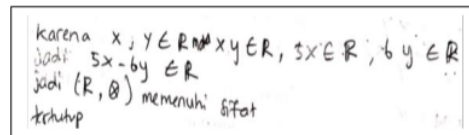 karena x, y ∈ R xy ∈ R, 5x ∈ R, 6y ∈ R
jadi 5x-6y ∈ R
jadi (R, ⊗) memenuhi sifat
tertutup